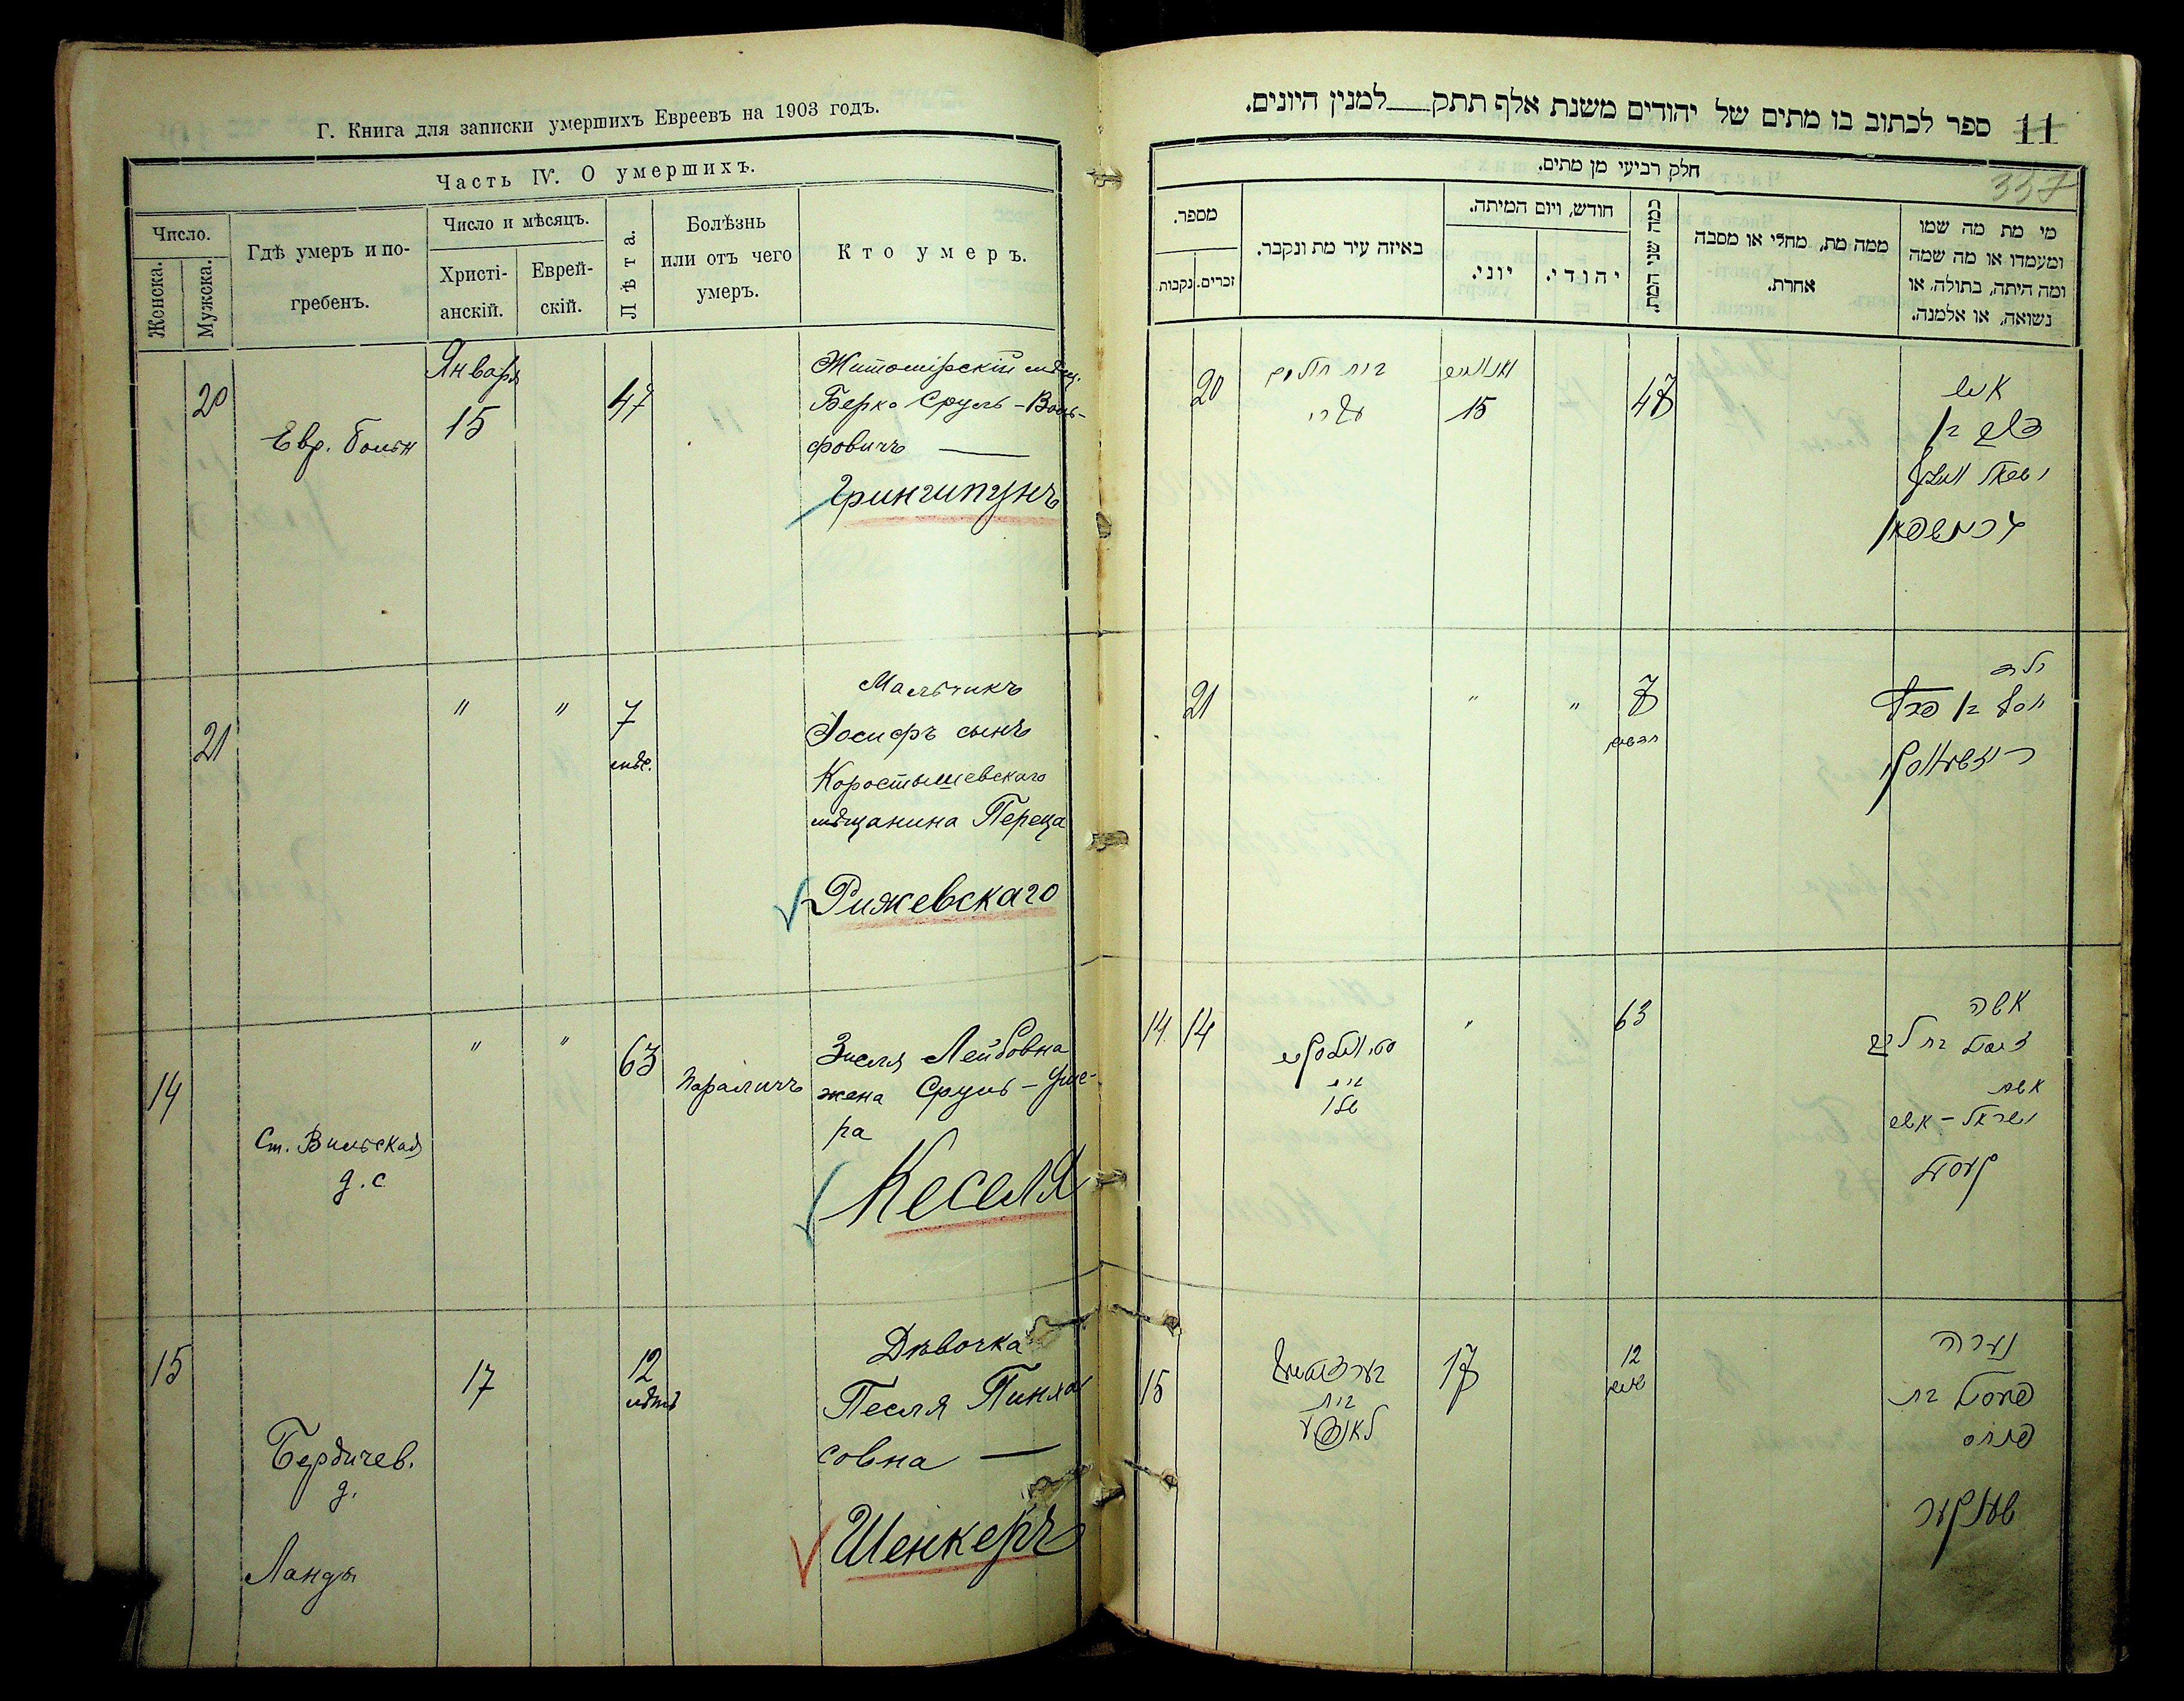 Г. Книга для записки умершихъ Евреевъ на 1903 годъ.
Часть IV. О умершихъ.
Число.
Женска.
Мужска.
Гдѣ умеръ и по-
гребенъ.
Число и мѣсяцъ.
Христі-
анскій.
Еврей-
скій.
Лѣта.
Болѣзнь
или отъ чего
умеръ.
Кто умеръ.
20
Евр. больн
Января
15
47
Житомірскій мѣщ.
Берко Сруль-Воль-
фовичъ —
Грингипунъ
21
"
"
7
мѣс.
Мальчикъ
Іосифъ сынъ
Коростышевскаго
мѣщанина Переца
Рижевскаго
14
Ст. Вильская
д. с
"
"
63
Параличъ
Зисля Лейбовна
жена Сруль-Уше-
ра
Кеселя
15
Бердичев.
д.
Ланды
17
12
лѣтъ
Дѣвочка
Песля Пинха
совна —
Шенкеръ
11
ספר לכתוב בו מתים של יהודים משנת אלף תתק למנין היונים.
337
חלק רביעי מן מתים.
מספר.
נקבות
זכרים.
באיזה עיר מת ונקבר.
חודש, ויום המיתה.
יוני.
יהודי.
כמה שני המת.
ממה מת, מחלי או מסבה
אחרת.
מי מת מה שמו
ומעמדו או מה שמה
ומה היתה, בתולה, או
נשואה, או אלמנה.
20
בית חולים
עברי
15
47
איש
בער בן
21
"
"
7
חדשים
ילד
יוסף בן פרץ
14
14
בית
"
63
אשה
זיסל בת ליב
אשת
ישראל-אשר
קעסיל
15
בית
לאנדע
17
12
שנים
נערה
פעסל בת
פנחס
שענקער